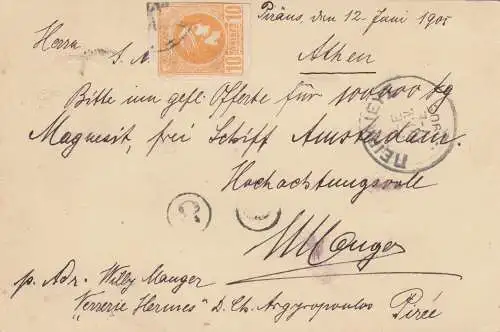 Piräus, den 12 Juni 1905
Herrn
S. A
Athen
10 10
Bitte um gefl. Offerte für 100,000 Kg
Magnesit, frei Schiff Amsterdam.
Hochachtungsvoll
WManger
ΠΕΙΡΑΙΕΥΣ
p. Adr. Willy Manger
"Verrerie Hermes" D. Ch. Argyropoulos
Pirée